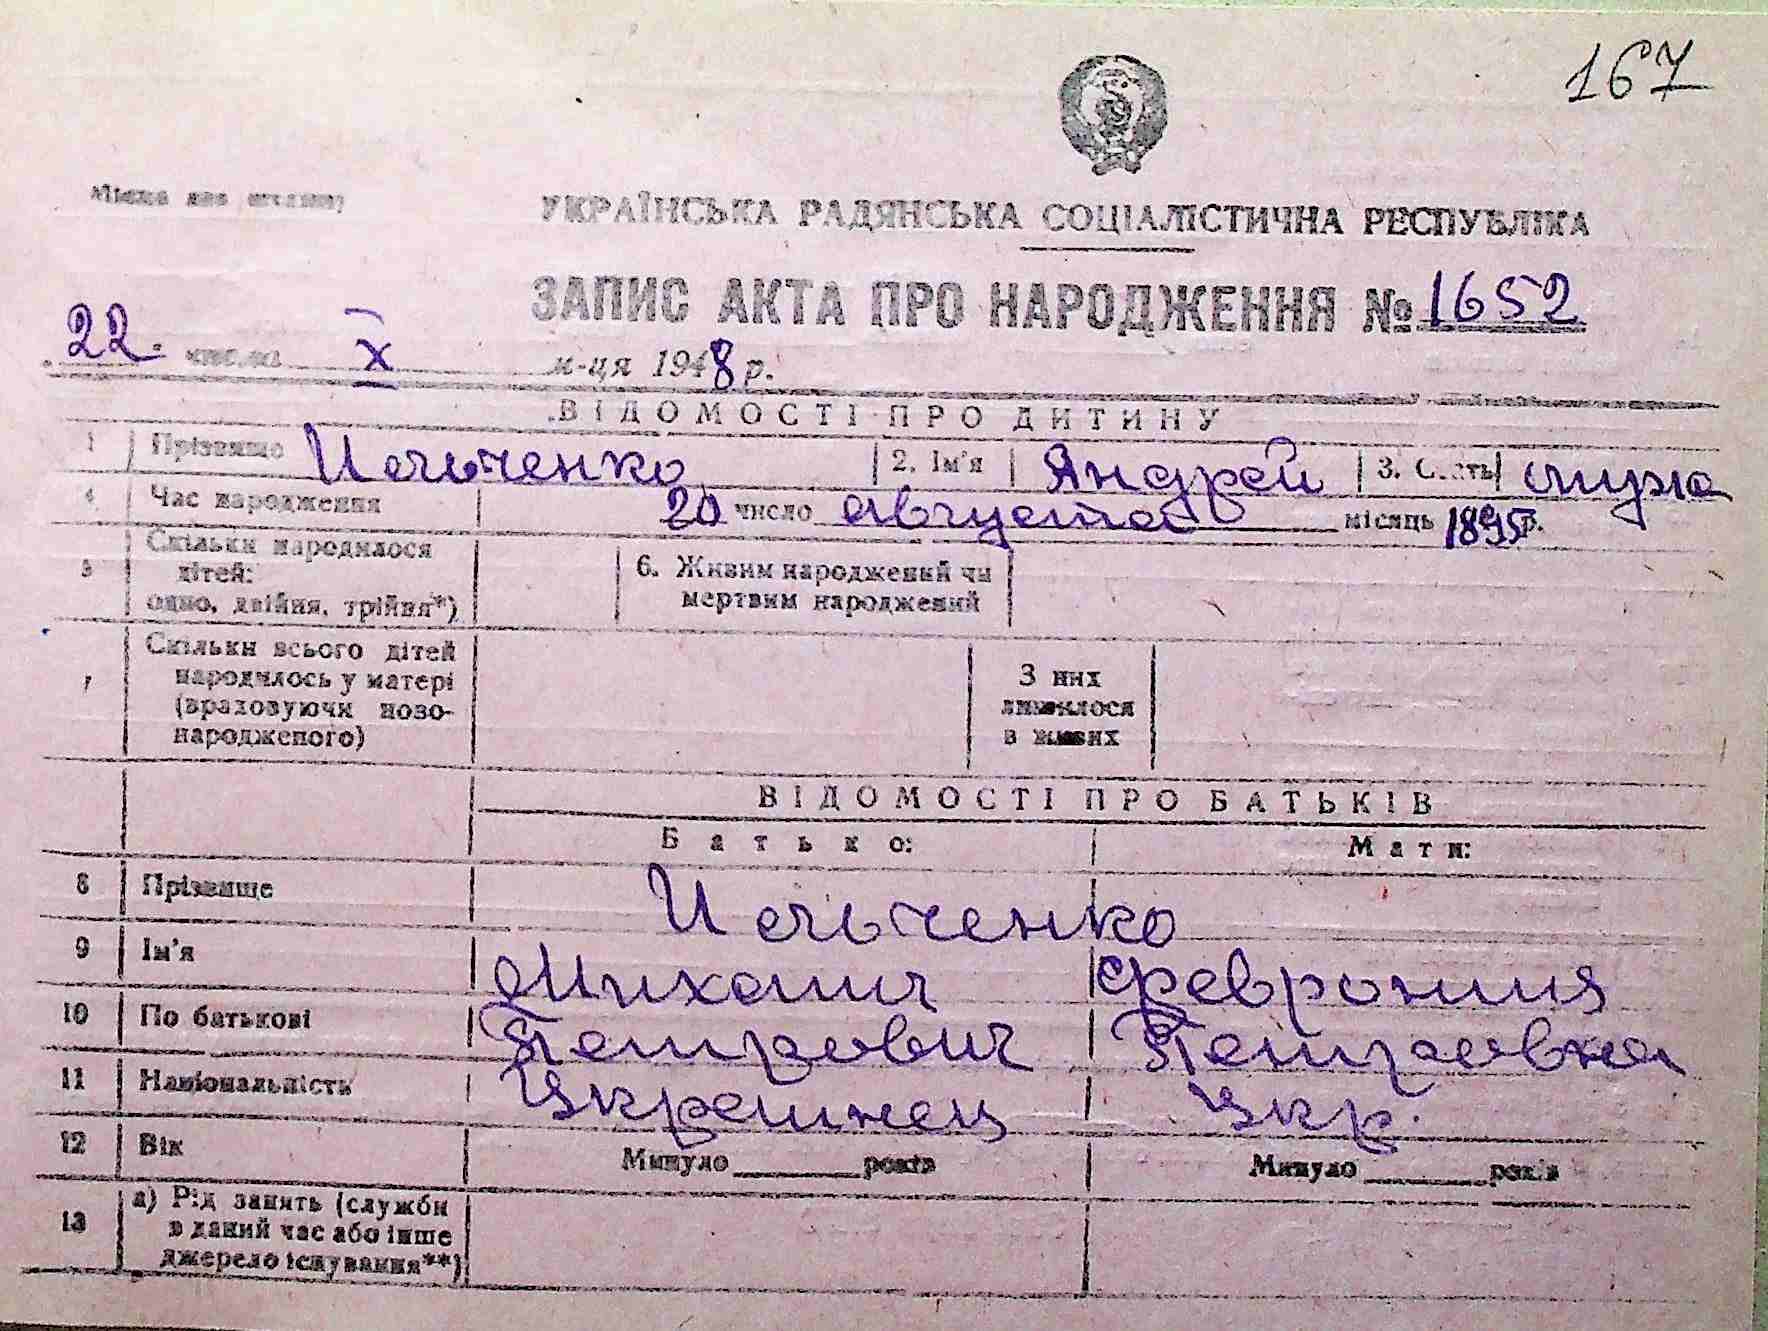 167
УКРАЇНСЬКА РАДЯНСЬКА СОЦІАЛІСТИЧНА РЕСПУБЛІКА
ЗАПИС АКТА ПРО НАРОДЖЕННЯ № 1652
22 числа X м-ця 1948 р.
ВІДОМОСТІ ПРО ДИТИНУ
1 Прізвище Ильченко 2. Ім'я Андрей 3. Стать муж
4 Час народження 20 число августа місяць 1895 р.
5 Скільки народилося дітей: одно, двійня, трійня*)
6. Живим народжений чи мертвим народжений
7 Скільки всього дітей народилось у матері (враховуючи ново-народженого)
З них лишилося в живих
ВІДОМОСТІ ПРО БАТЬКІВ
Батько: Мати:
8 Прізвище Ильченко
9 Ім'я Михаил Феврония
10 По батькові Петрович Петровна
11 Національність Украинец Укр.
12 Вік Минуло років Минуло років
13 а) Рід занять (служби в даний час або інше джерело існування**)